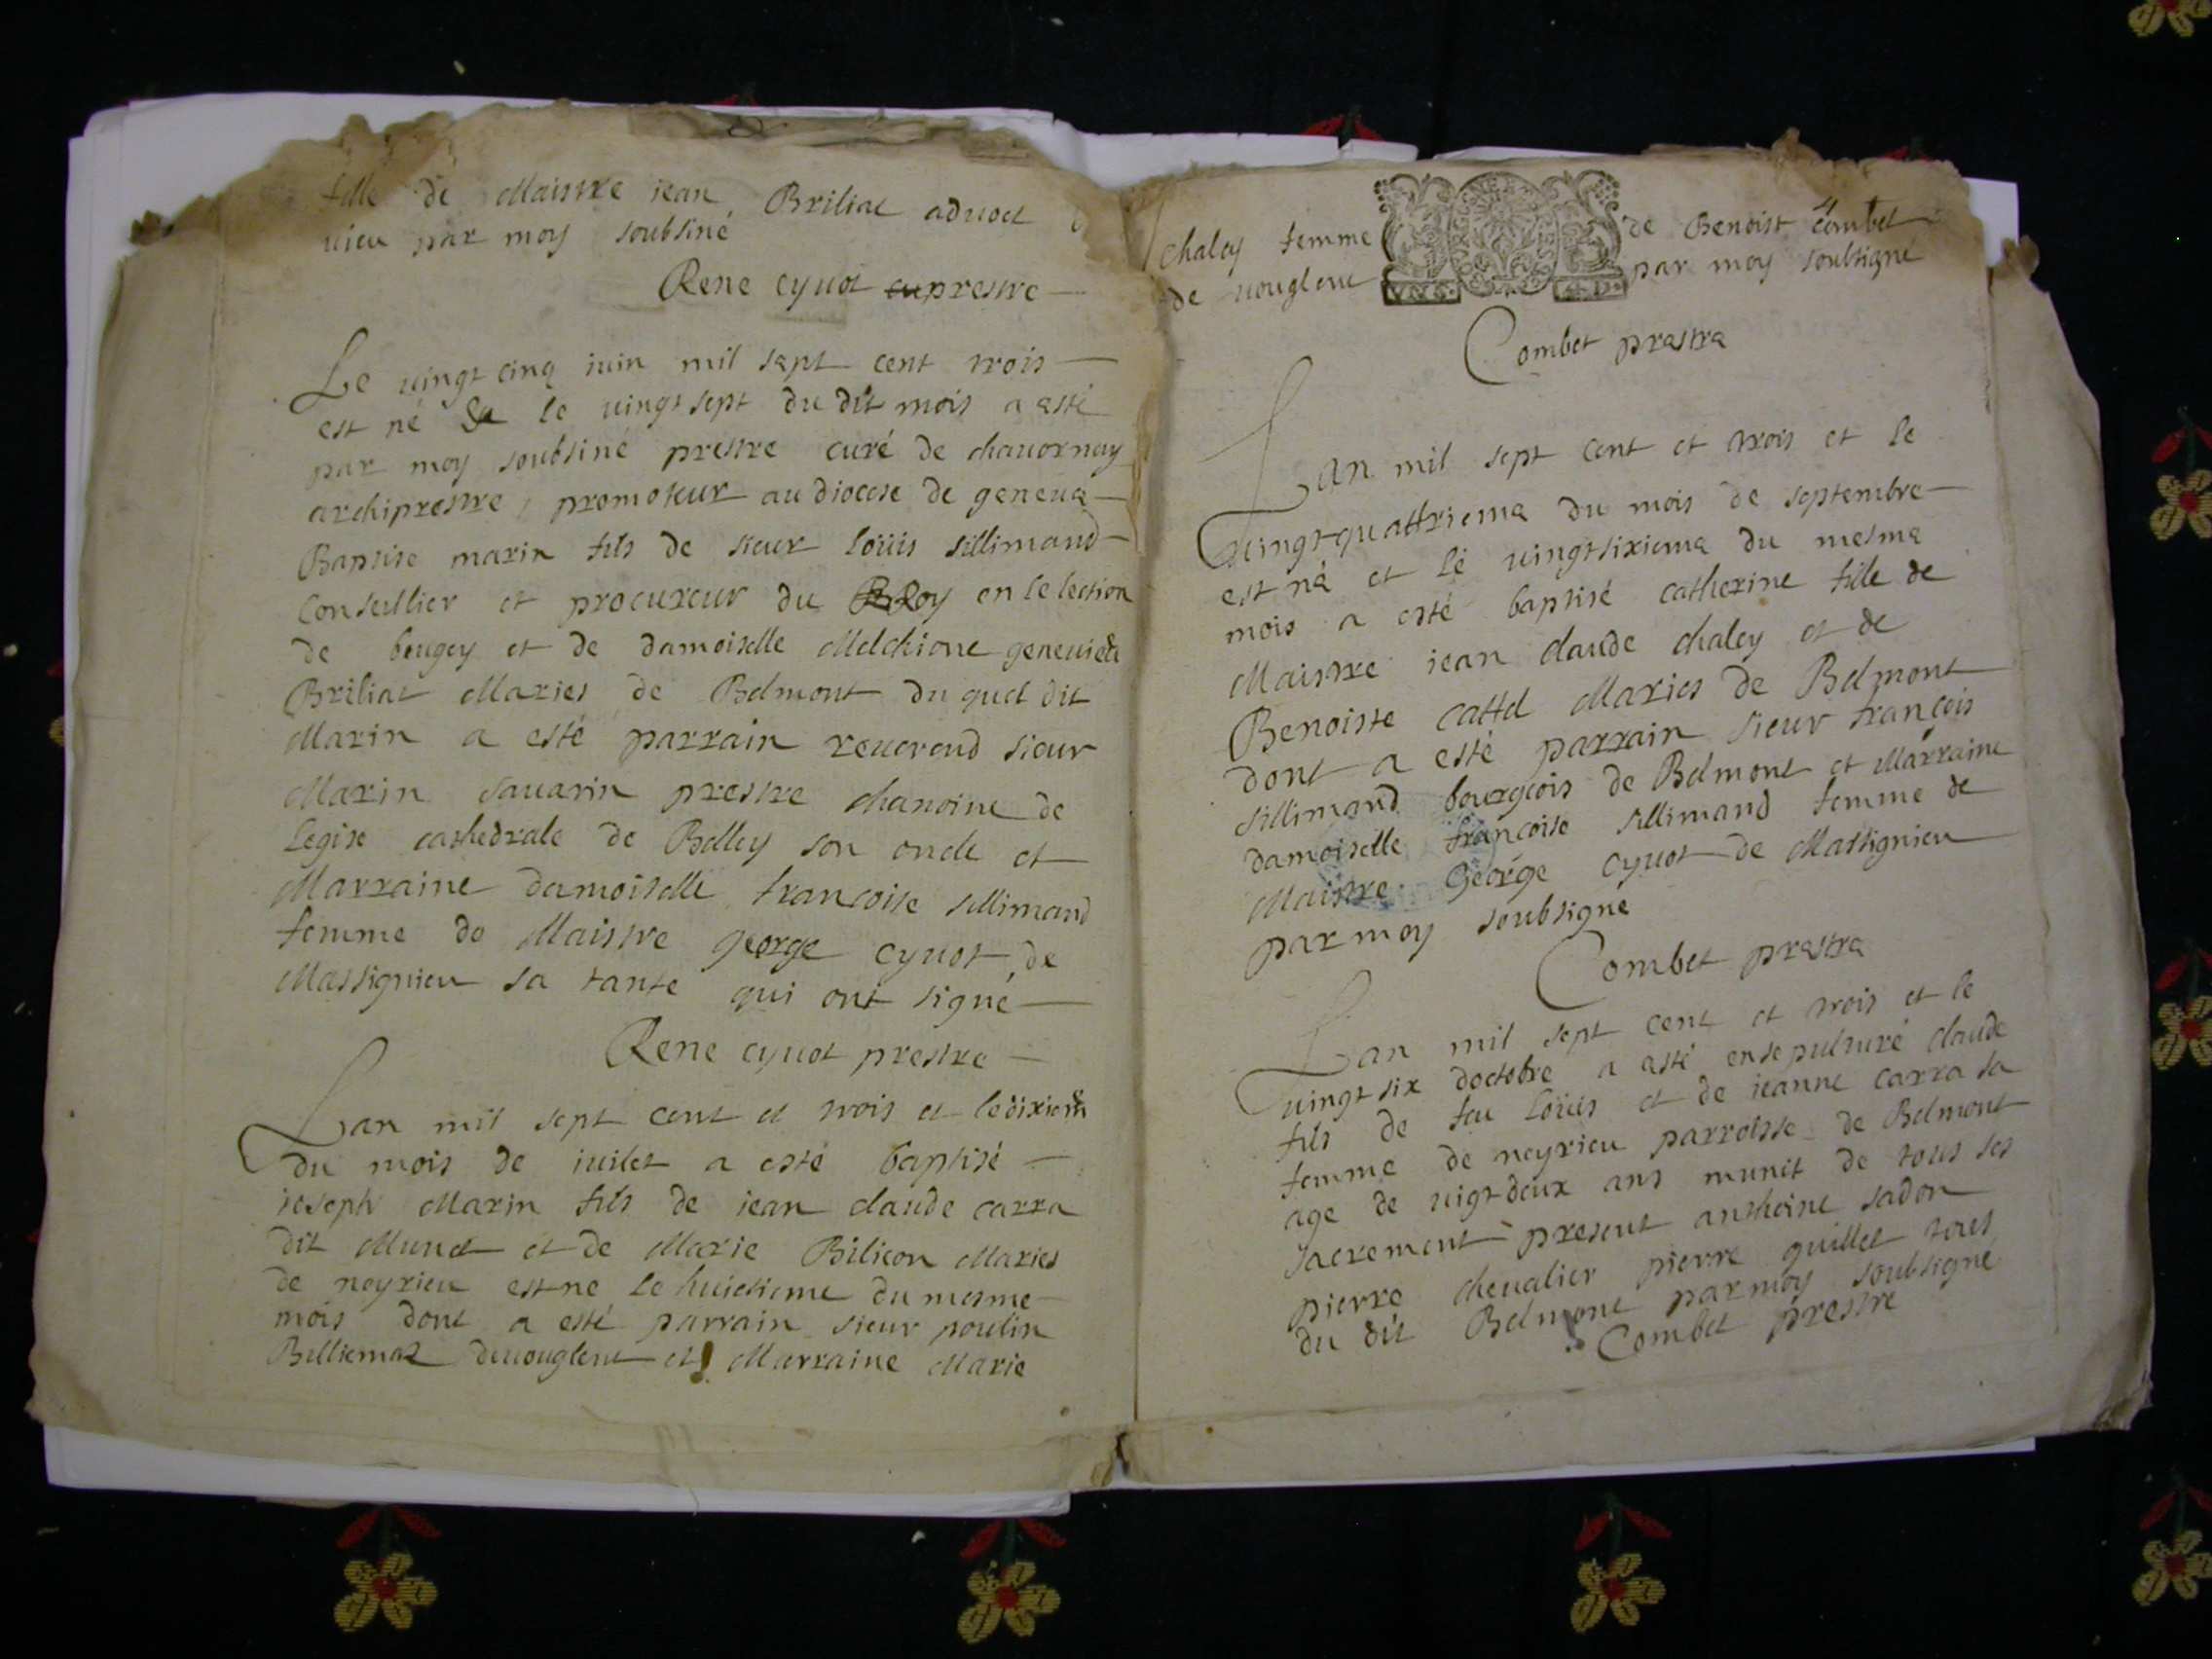 fille de Maistre iean Briliat advoct
vieu par moy soubsiné
Rene cyvot cu prestre
Le vingt cinq iuin mil sept cent trois
est né & le vingt sept du dit mois a esté
par moy soubsiné prestre curé de chavornay
archiprestre, promoteur au diocese de geneve
Baptise marin fils de sieur loüis sillimand
Conseillier et procureur du Roy en lelection
de beugey et de damoiselle Melchione genevieve
Briliat Maries de Belmont du quel dit
Marin a esté parrain reverend sieur
Marin savarin prestre chanoine de
legise cathedrale de Belley son oncle et
Marraine damoiselle francoise sillimand
femme de Maistre george cyvot de
Massignieu sa tante qui ont signé
Rene cyvot prestre
Lan mil sept cent et trois et le dixieme
du mois de iuilet a esté baptisé
ioseph Marin fils de iean claude carra
dit Munet et de Marie Bilicon Maries
de neyrieu est ne le huictieme du mesme
mois dont a esté parrain sieur poulin
Billiemaz devouglent et Marraine Marie
4
chaley femme de Benoist combet
de vouglene par moy soubsigne
Combet prestre
Lan mil sept cent et trois et le
vingt quattrieme du mois de septembre
est né et lé vingtsixieme du mesme
mois a esté baptisé catherine fille de
Maistre iean claude chaley et de
Benoiste cattel Maries de Belmont
dont a esté parrain sieur françois
sillimand bourgeois de Belmont et Marraine
damoiselle françoise sillimand femme de
Maistre George cyvot de Massignieu
par moy soubsigne
Combet prestre
Lan mil sept cent et trois et le
vingt six doctobre a esté ensepulturé claude
fils de feu loüis et de ieanne carra sa
femme de neyrieu parroisse de Belmont
age de vigt deux ans munit de tous ses
sacrement present anthoine sadon
pierre chevalier pierre guillet tous
du dit Belmont par moy soubsigne
Combet prestre